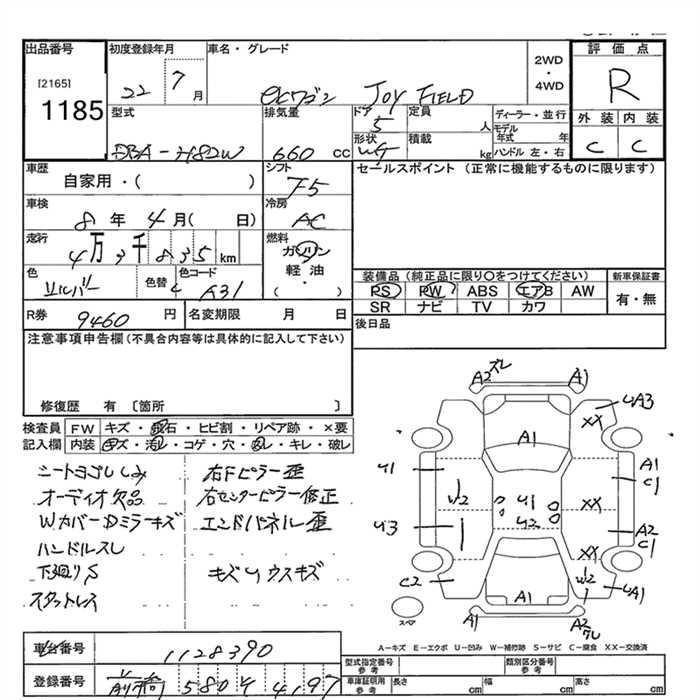 出品番号
[2165]
1185
初度登録年月
22 7月
車名・グレード
ekワゴン JOY FIELD
2WD
・
4WD
評価点
R
外装 内装
C C
型式
DBA-H82W
排気量
660 cc
ドア
5
形状
定員
人
積載
kg
ディーラー・並行
モデル年式 年
ハンドル 左・右
車歴
自家用・( )
シフト
F5
セールスポイント (正常に機能するものに限ります)
車検
8年 4月( 日)
冷房
AC
走行
4万3千835km
燃料
ガソリン
軽油
・( )
色
シルバー
色替
色コード
A31
装備品(純正品に限り〇をつけてください)
新車保証書
PS PW ABS エアB AW
有・無
SR ナビ TV カワ
R券
9460円
名変期限 月 日
後日品
注意事項申告欄(不具合内容等は具体的に記入して下さい)
修復歴 有 〔箇所 〕
検査員記入欄
FW キズ・飛石・ヒビ割・リペア跡・×要
内装 キズ・汚れ・コゲ・穴・・キレ・破レ
シートヨゴレしみ
オーディオ欠品
Wカバー・Dミラーキズ
ハンドルスレ
下廻りS
スタットレス
右Fピラー歪
右センターピラー修正
エンドパネル歪
キズuウスキズ
A2ズレ A1
A1 XX uA3
u1 A1
C1
w2 u1 XX
u2
u3 A2
C1
XX
C2 w2 uA1
A1
スペア A1 A2
A-キズ E-エクボ U-凹み W-補修跡 S-サビ C-腐食 XX-交換済
車台番号
1128390
登録番号
前橋 580 4197
型式指定番号
参考
類別区分番号
参考
車庫証明用
参考
長さ cm
幅 cm
高さ cm